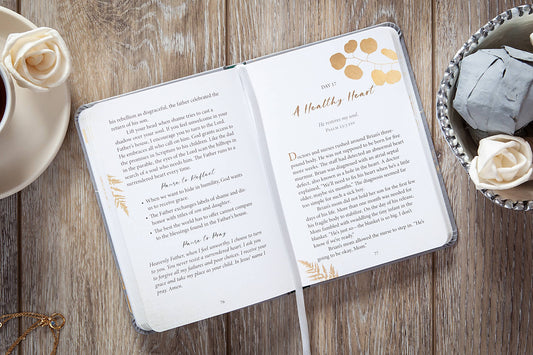 his rebellion as disgraceful, the father celebrated the
return of his son.
Lift your head when shame tries to cast a
shadow over your soul. If you feel unwelcome in your
Father's house, I encourage you to turn to the Lord.
He embraces all who call on him. God grants access to
the promises in Scripture to his children. Like the dad
in the parable, the eyes of the Lord scan the hilltops in
search of a soul who needs him. The Father runs to a
surrendered heart every time.
Pause to Reflect
• When we want to hide in humility, God wants
us to receive grace.
• The Father exchanges labels of shame and dis-
honor with titles of son and daughter.
• The best the world has to offer cannot compare
to the blessings found in the Father's house.
Pause to Pray
Heavenly Father, when I feel unworthy, I choose to turn
to you. You never resist a surrendered heart. I ask you
to forgive all my failures and poor choices. I receive your
grace and take my place as your child. In Jesus' name I
pray. Amen.
76
DAY 17
A Healthy Heart
He restores my soul.
Psalm 23:3 ESV
Doctors and nurses rushed around Brian's three-
pound body. He was not supposed to be born for five
more weeks. The staff had detected an abnormal heart
rhythm. Brian was diagnosed with an atrial septal
defect, also known as a hole in the heart. A doctor
explained, "He'll need to fix his heart when he is
older, maybe six months." The diagnosis seemed far
too simple for such a sick boy.
Brian's mom did not hold her son for the first few
days of his life. More than one month was needed for
his fragile body to stabilize. On the day of his release,
Mom fumbled with swaddling the tiny infant in the
blanket. "He's just so—the blanket is so big. I don't
know if we're ready."
Brian's mom allowed the nurse to step in. "He's
going to be okay, Mom."
77